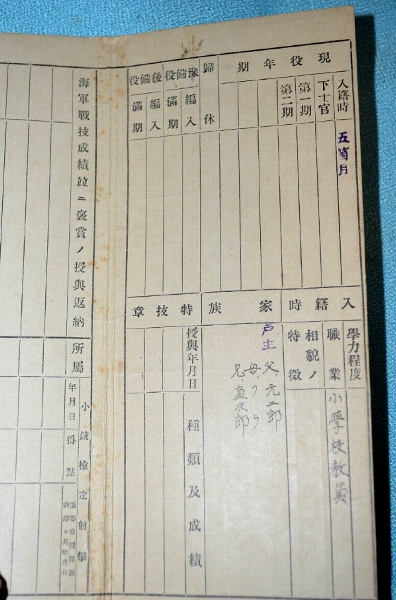 現役年期
入籍時
五箇月
下士官
第一期
第二期
歸休
豫備役
編入
滿期
後備役
編入
滿期
入籍時
學力程度
職業
小學校教員
相貌ノ特徵
家族
戸主
父
母
兄 直次郎
特技章
授與年月日
種類及成績
海軍戰技成績竝ニ褒賞ノ授與返納
所屬
小銃檢定射擊
年月日
得點